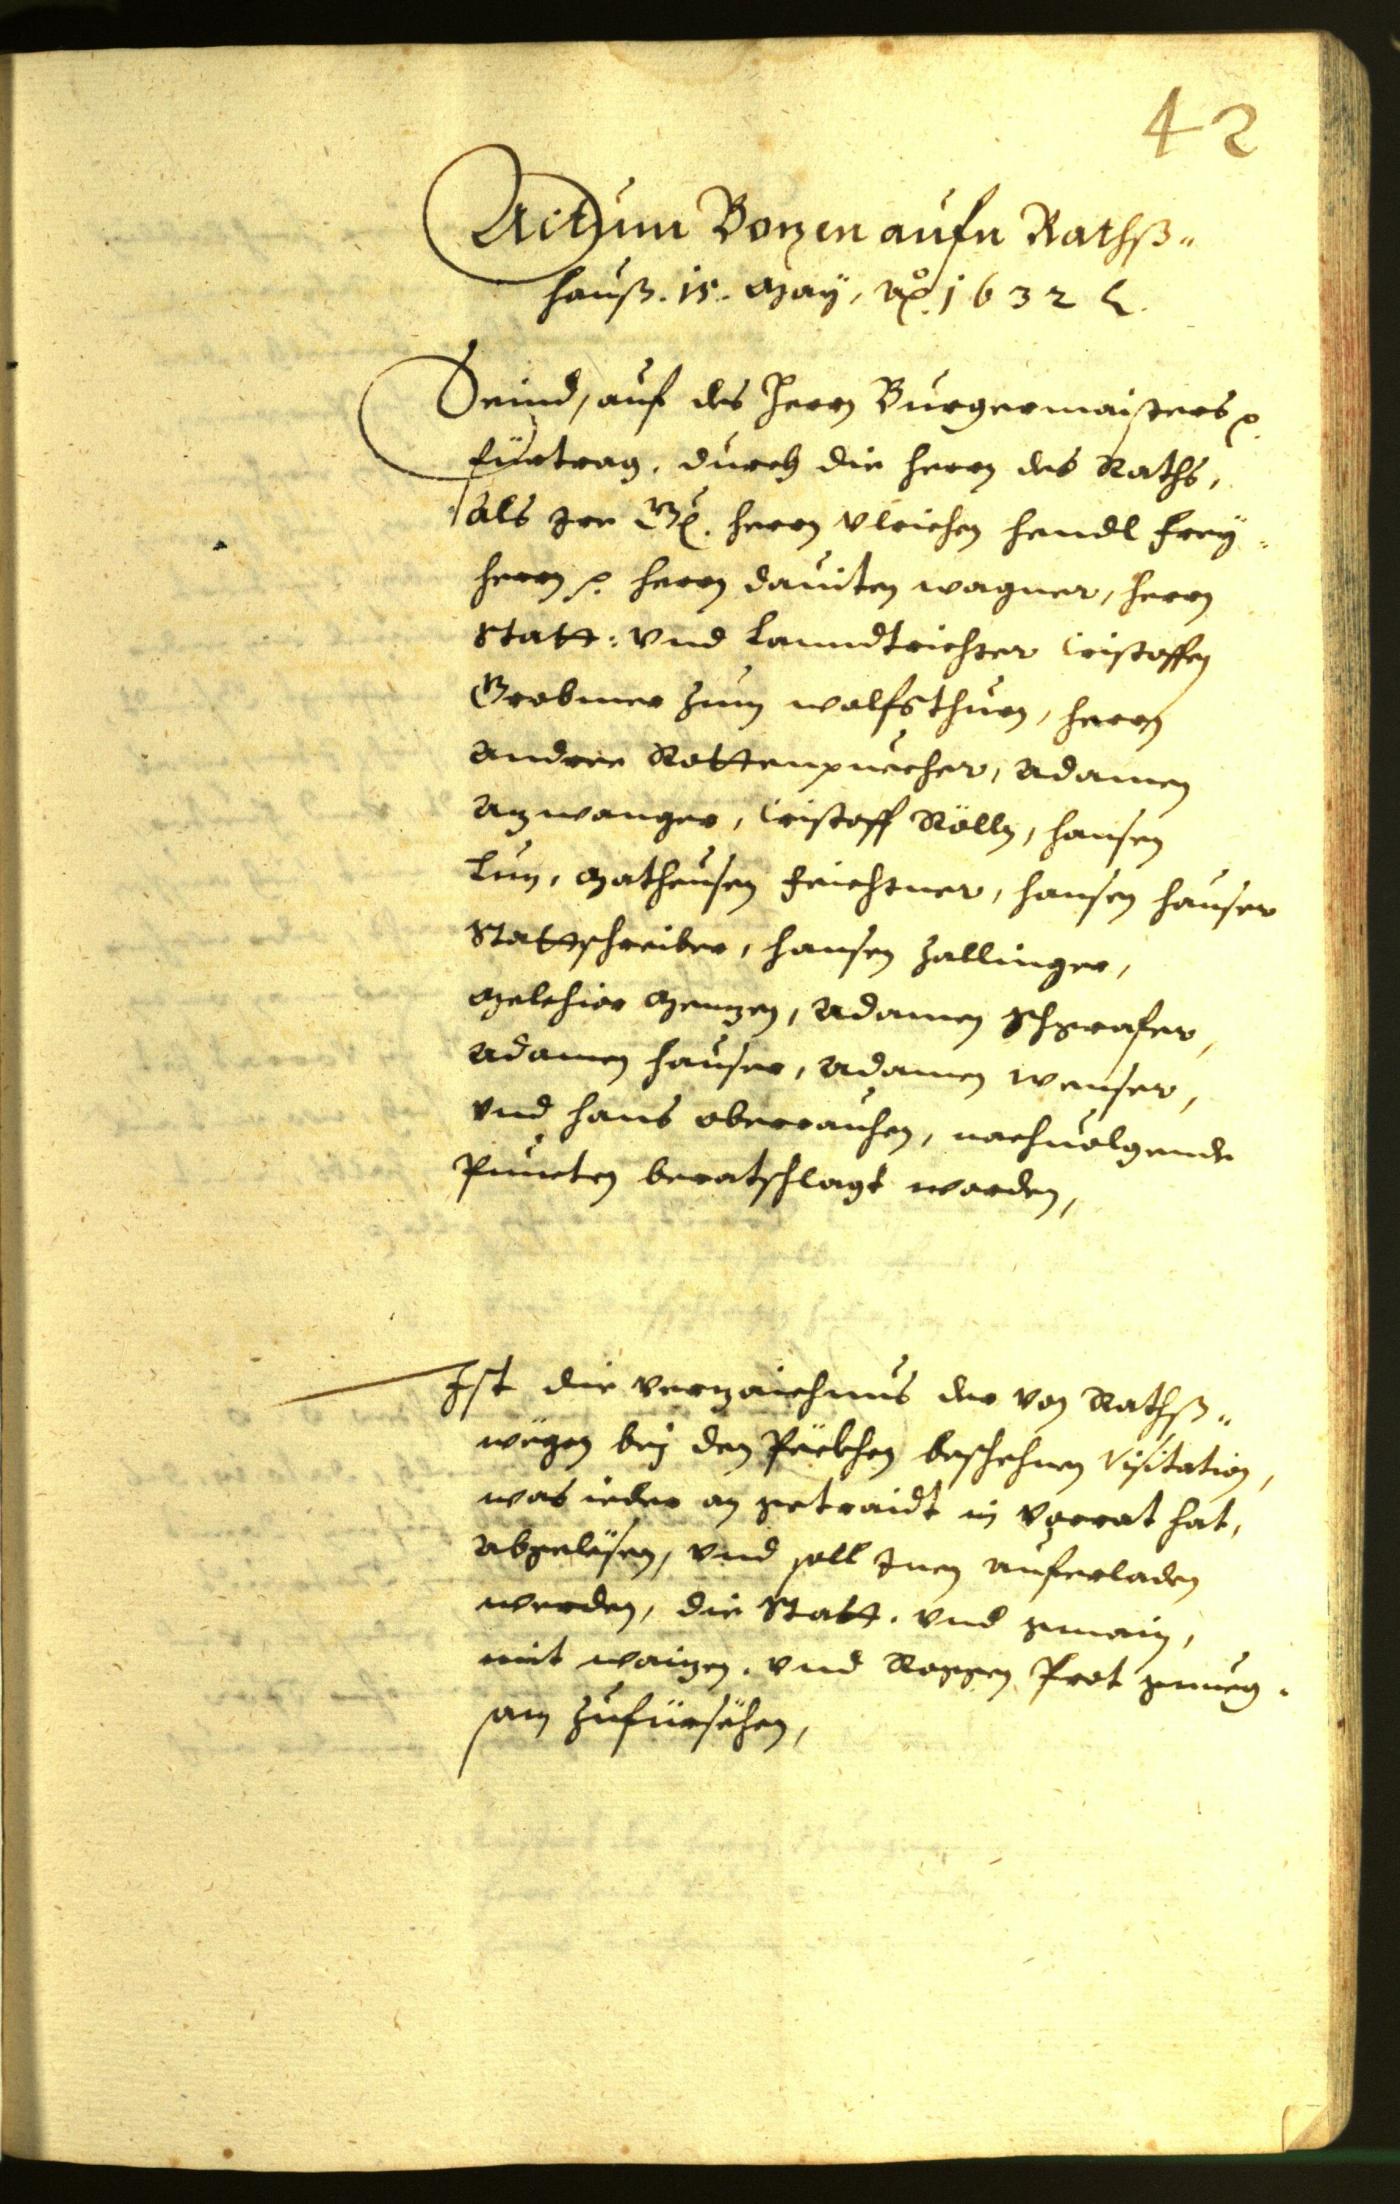 42
Actum Bozen aufn Rathß„
hauß. 15. May, Aō. 1632
Seind, auf des Herrn Burgermaisters
fürtrag, durch die herrn des Raths,
als Ire Gn. herrn Vlrichen Hendl frey„
herrn herrn dauiten wagner, herrn
Statt: vnd Lanndtrichter Cristoffen
Grobmer zum wolfsthurn, herrn
Andree Rottenpuecher, Adamen
Azwanger, Cristoff Rölln, hansen
Lun, Matheusen Feichtner, hansen hauser
Stattschreiber, hansen Zallinger,
Melchior Menzen, Adamen
Adamen hauser, Adamen Wenser,
vnd hans oberrauhen, nachuolgende
Puncten beratschlagt worden,
Ist die verzaichnus der von Rathß„
wegen bej den Peckhen beschehnen Visitation,
was ieder an getraidt in Vorrat hat,
abgelesen, vnd soll Inen auferladen
werden, die Statt. vnd gmain,
mit waizen. vnd Roggen Prot gnueg„
sam zufürsehen,